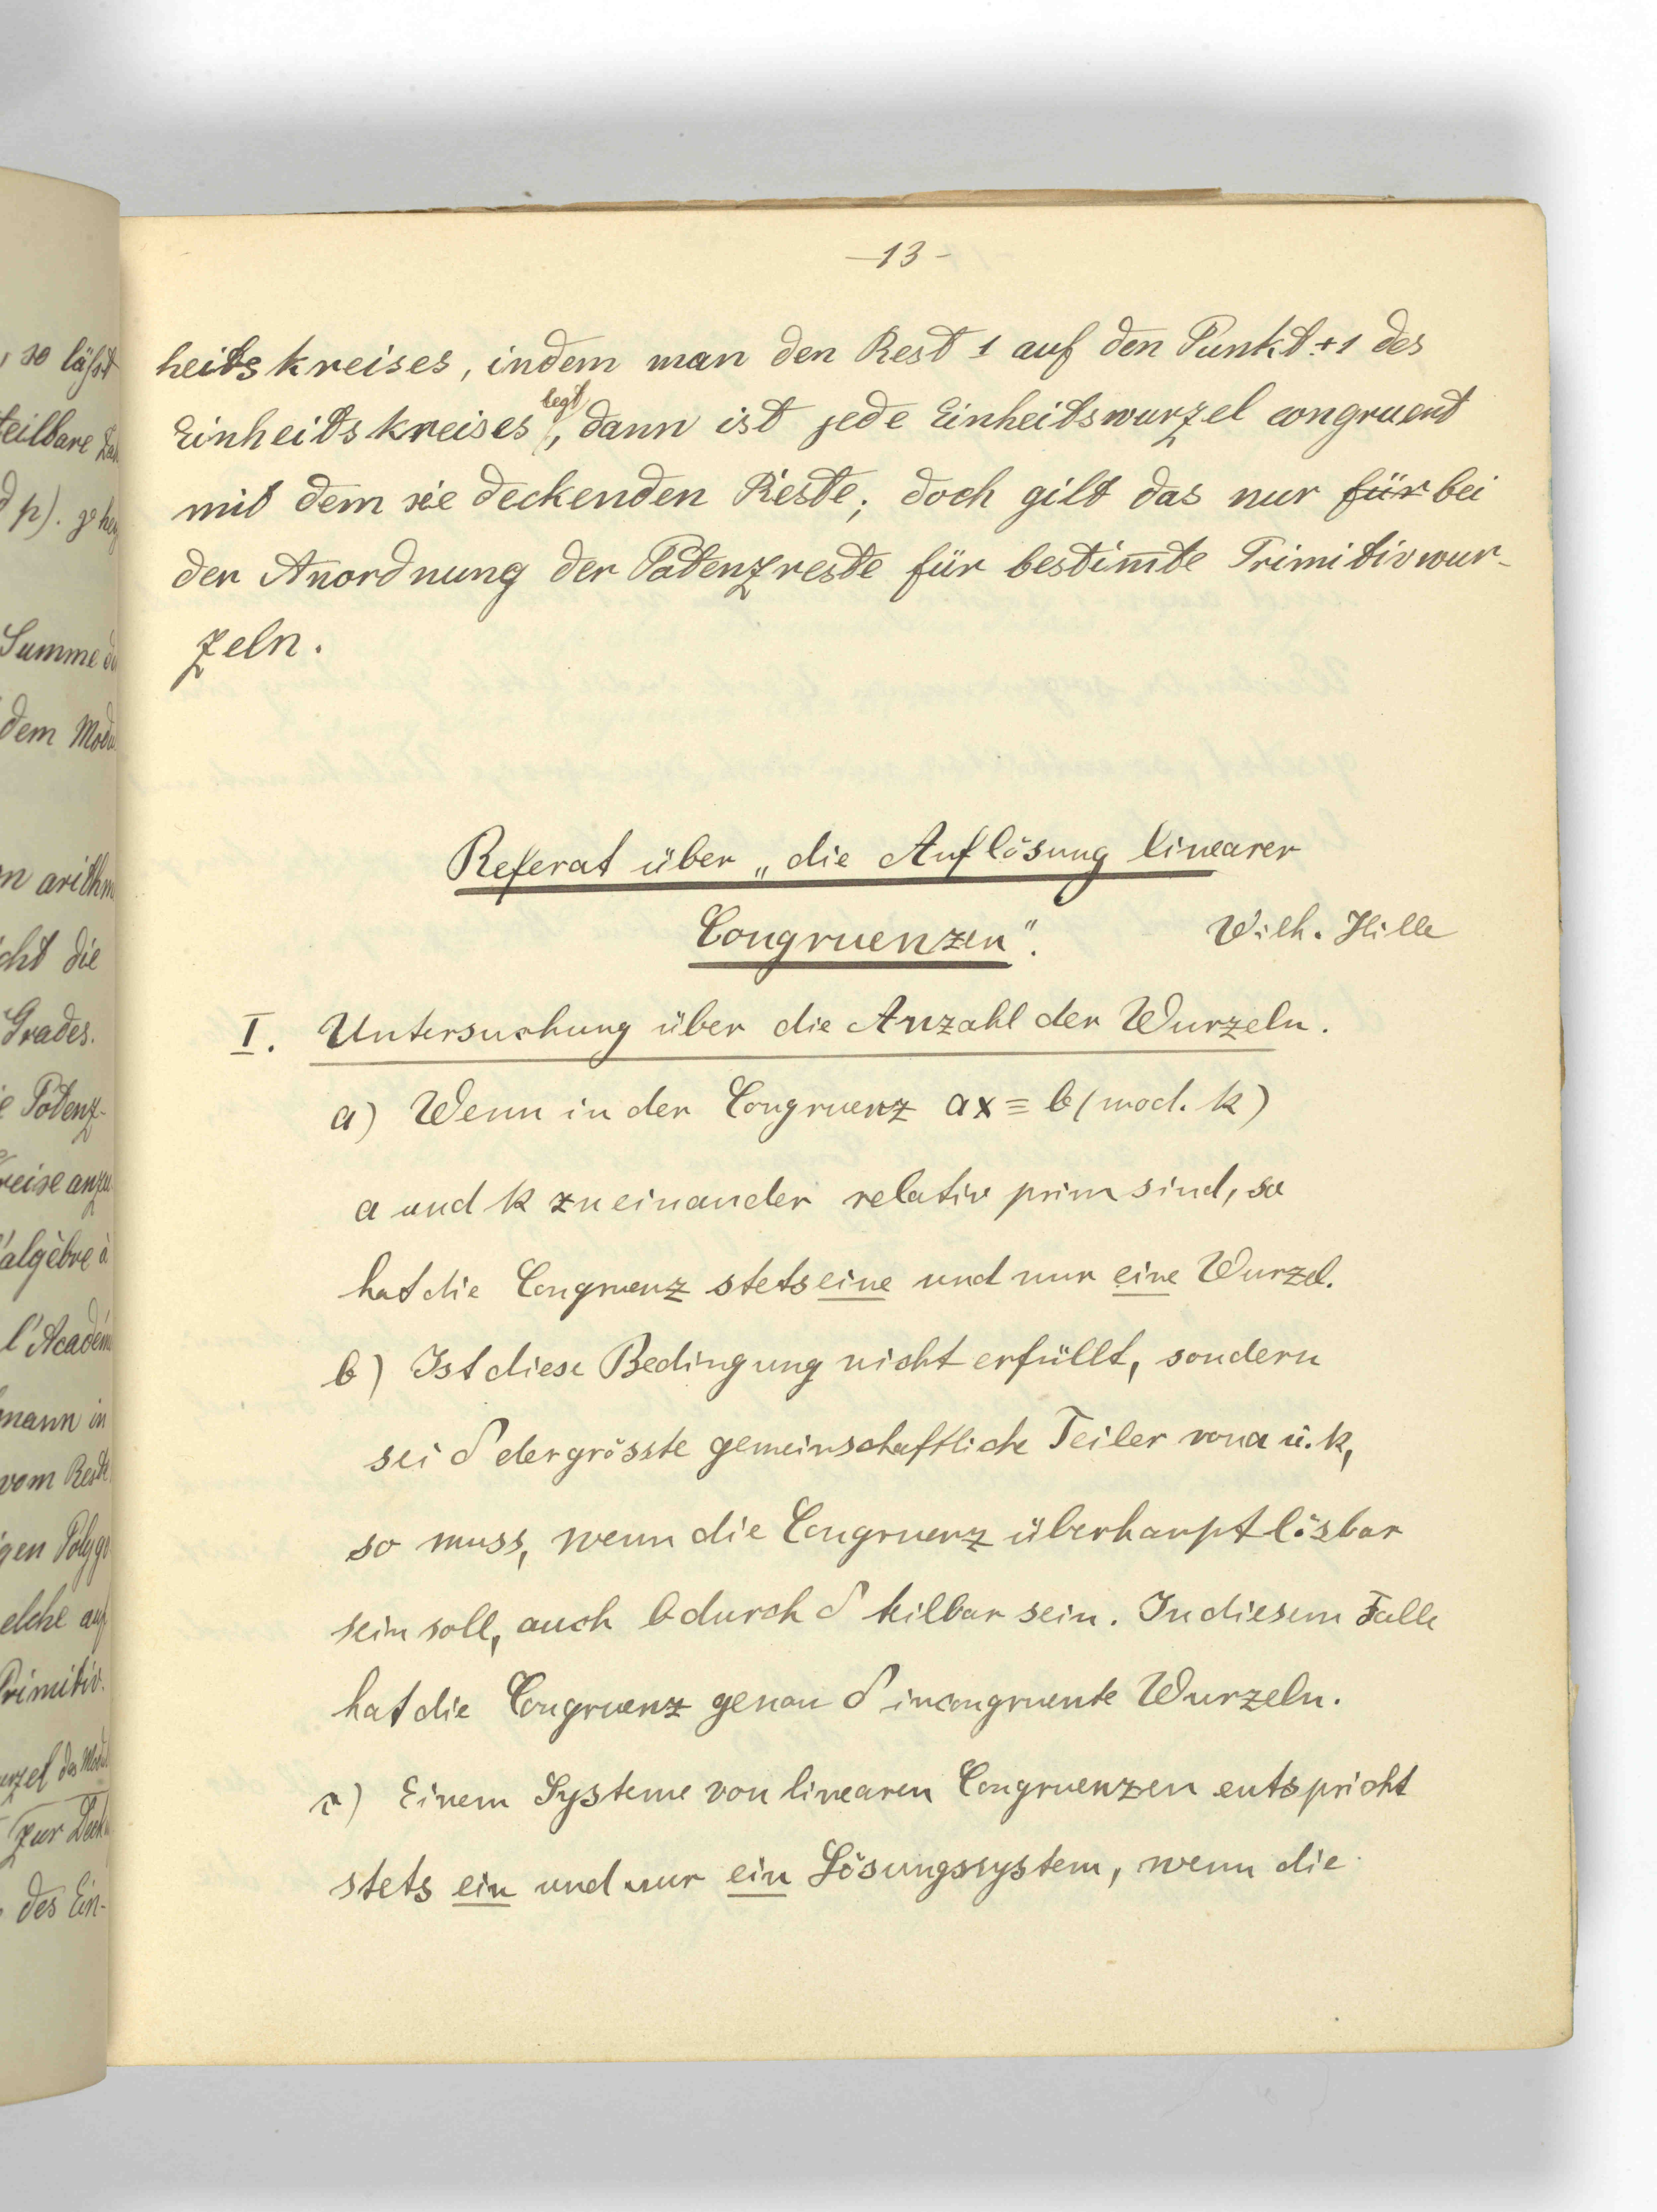 -13-
heitskreises, indem man den Rest 1 auf den Punkt +1 des
Einheitskreises legt, dann ist jede Einheitswurzel congruent
mit dem sie deckenden Reste; doch gilt das nur für bei
der Anordnung der Potenzreste für bestim̅te Primitivwur-
zeln.
Referat über „die Auflösung linearer
Congruenzen".
Wilh. Hille
I. Untersuchung über die Anzahl der Wurzeln.
a) Wenn in der Congruenz ax ≡ b (mod. k)
a und k zueinander relativ prim sind, so
hat die Congruenz stets eine und nur eine Wurzel.
b) Ist diese Bedingung nicht erfüllt, sondern
sei δ der grösste gemeinschaftliche Teiler von a u. k,
so muss, wenn die Congruenz überhaupt lösbar
sein soll, auch b durch δ teilbar sein. In diesem Falle
hat die Congruenz genau δ incongruente Wurzeln.
c) Einem Systeme von linearen Congruenzen entspricht
stets ein und nur ein Lösungssystem, wenn die
so läßt
teilbare
p).
Summe
dem
arithm
die
Grades.
Potenz-
reise
l'algèbre à
l'Académ
mann in
vom Rest
gen Polygo
elche auf
Primitiv.
zur
des Ein-